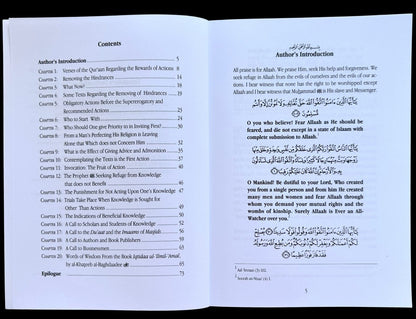 Contents
Author's Introduction 5
CHAPTER 1. Verses of the Qur'aan Regarding the Rewards of Actions 8
CHAPTER 2. Removing the Hindrances 14
CHAPTER 3. What Now? 16
CHAPTER 4. Some Texts Regarding the Removing of 'Hindrances 16
CHAPTER 5. Obligatory Actions Before the Supererogatory and
Recommended Actions 23
CHAPTER 6. Who to Start With 24
CHAPTER 7. Who Should One give Priority to in Inviting First? 30
CHAPTER 8. From a Man's Perfecting His Religion is Leaving
Alone that Which does not Concern Him 32
CHAPTER 9. What is the Effect of Giving Advice and Admonition 35
CHAPTER 10. Contemplating the Texts is the First Action 37
CHAPTER 11. Invocation: The Fruit of Action 40
CHAPTER 12. The Prophet ﷺ Seeking Refuge from Knowledge
that does not Benefit 46
CHAPTER 13. The Punishment for Not Acting Upon One's Knowledge 47
CHAPTER 14. Trials Take Place When Knowledge is Sought for
Other Than Actions 49
CHAPTER 15. The Indications of Beneficial Knowledge 50
CHAPTER 16. A Call to Scholars and Students of Knowledge 52
CHAPTER 17. A Call to the Du'aat and the Imaams of Masjids
CHAPTER 18. A Call to Authors and Book Publishers
CHAPTER 19. A Call to Businessmen
CHAPTER 20. Words of Wisdom From the Book Iqtidaa al-'Ilmil-'Amal,
by al-Khateeb al-Baghdaadee 65
Epilogue 73
بسم الله الرحمن الرحيم
Author's Introduction
All praise is for Allaah. We praise Him, seek His help and forgiveness. We
seek refuge in Allaah from the evils of ourselves and the evils of our ac-
tions. I bear witness none has the right to be worshipped except
Allaah and I bear witness that Muhammad ﷺ is His slave and Messenger.
يَٰٓأَيُّهَا ٱلَّذِينَ ءَامَنُوا۟ ٱتَّقُوا۟ ٱللَّهَ حَقَّ تُقَاتِهِۦ وَلَا تَمُوتُنَّ إِلَّا وَأَنتُم
مُّسْلِمُونَ
O you who believe! Fear Allaah as He should be
feared, and die not except in a state of Islaam with
complete submission to Allaah.
يَٰٓأَيُّهَا ٱلنَّاسُ ٱتَّقُوا۟ رَبَّكُمُ ٱلَّذِى خَلَقَكُم مِّن نَّفْسٍ وَٰحِدَةٍ وَخَلَقَ
O Mankind! Be dutiful to your Lord, Who created
you from a single person and from him He created
many men and women and fear Allaah through
whom you demand your mutual rights and the
wombs of kinship. Surely Allaah is Ever an All-
Watcher over you.
يَٰٓأَيُّهَا ٱلَّذِينَ ءَامَنُوا۟ ٱتَّقُوا۟ ٱللَّهَ وَقُولُوا۟ قَوْلًا سَدِيدًا
5